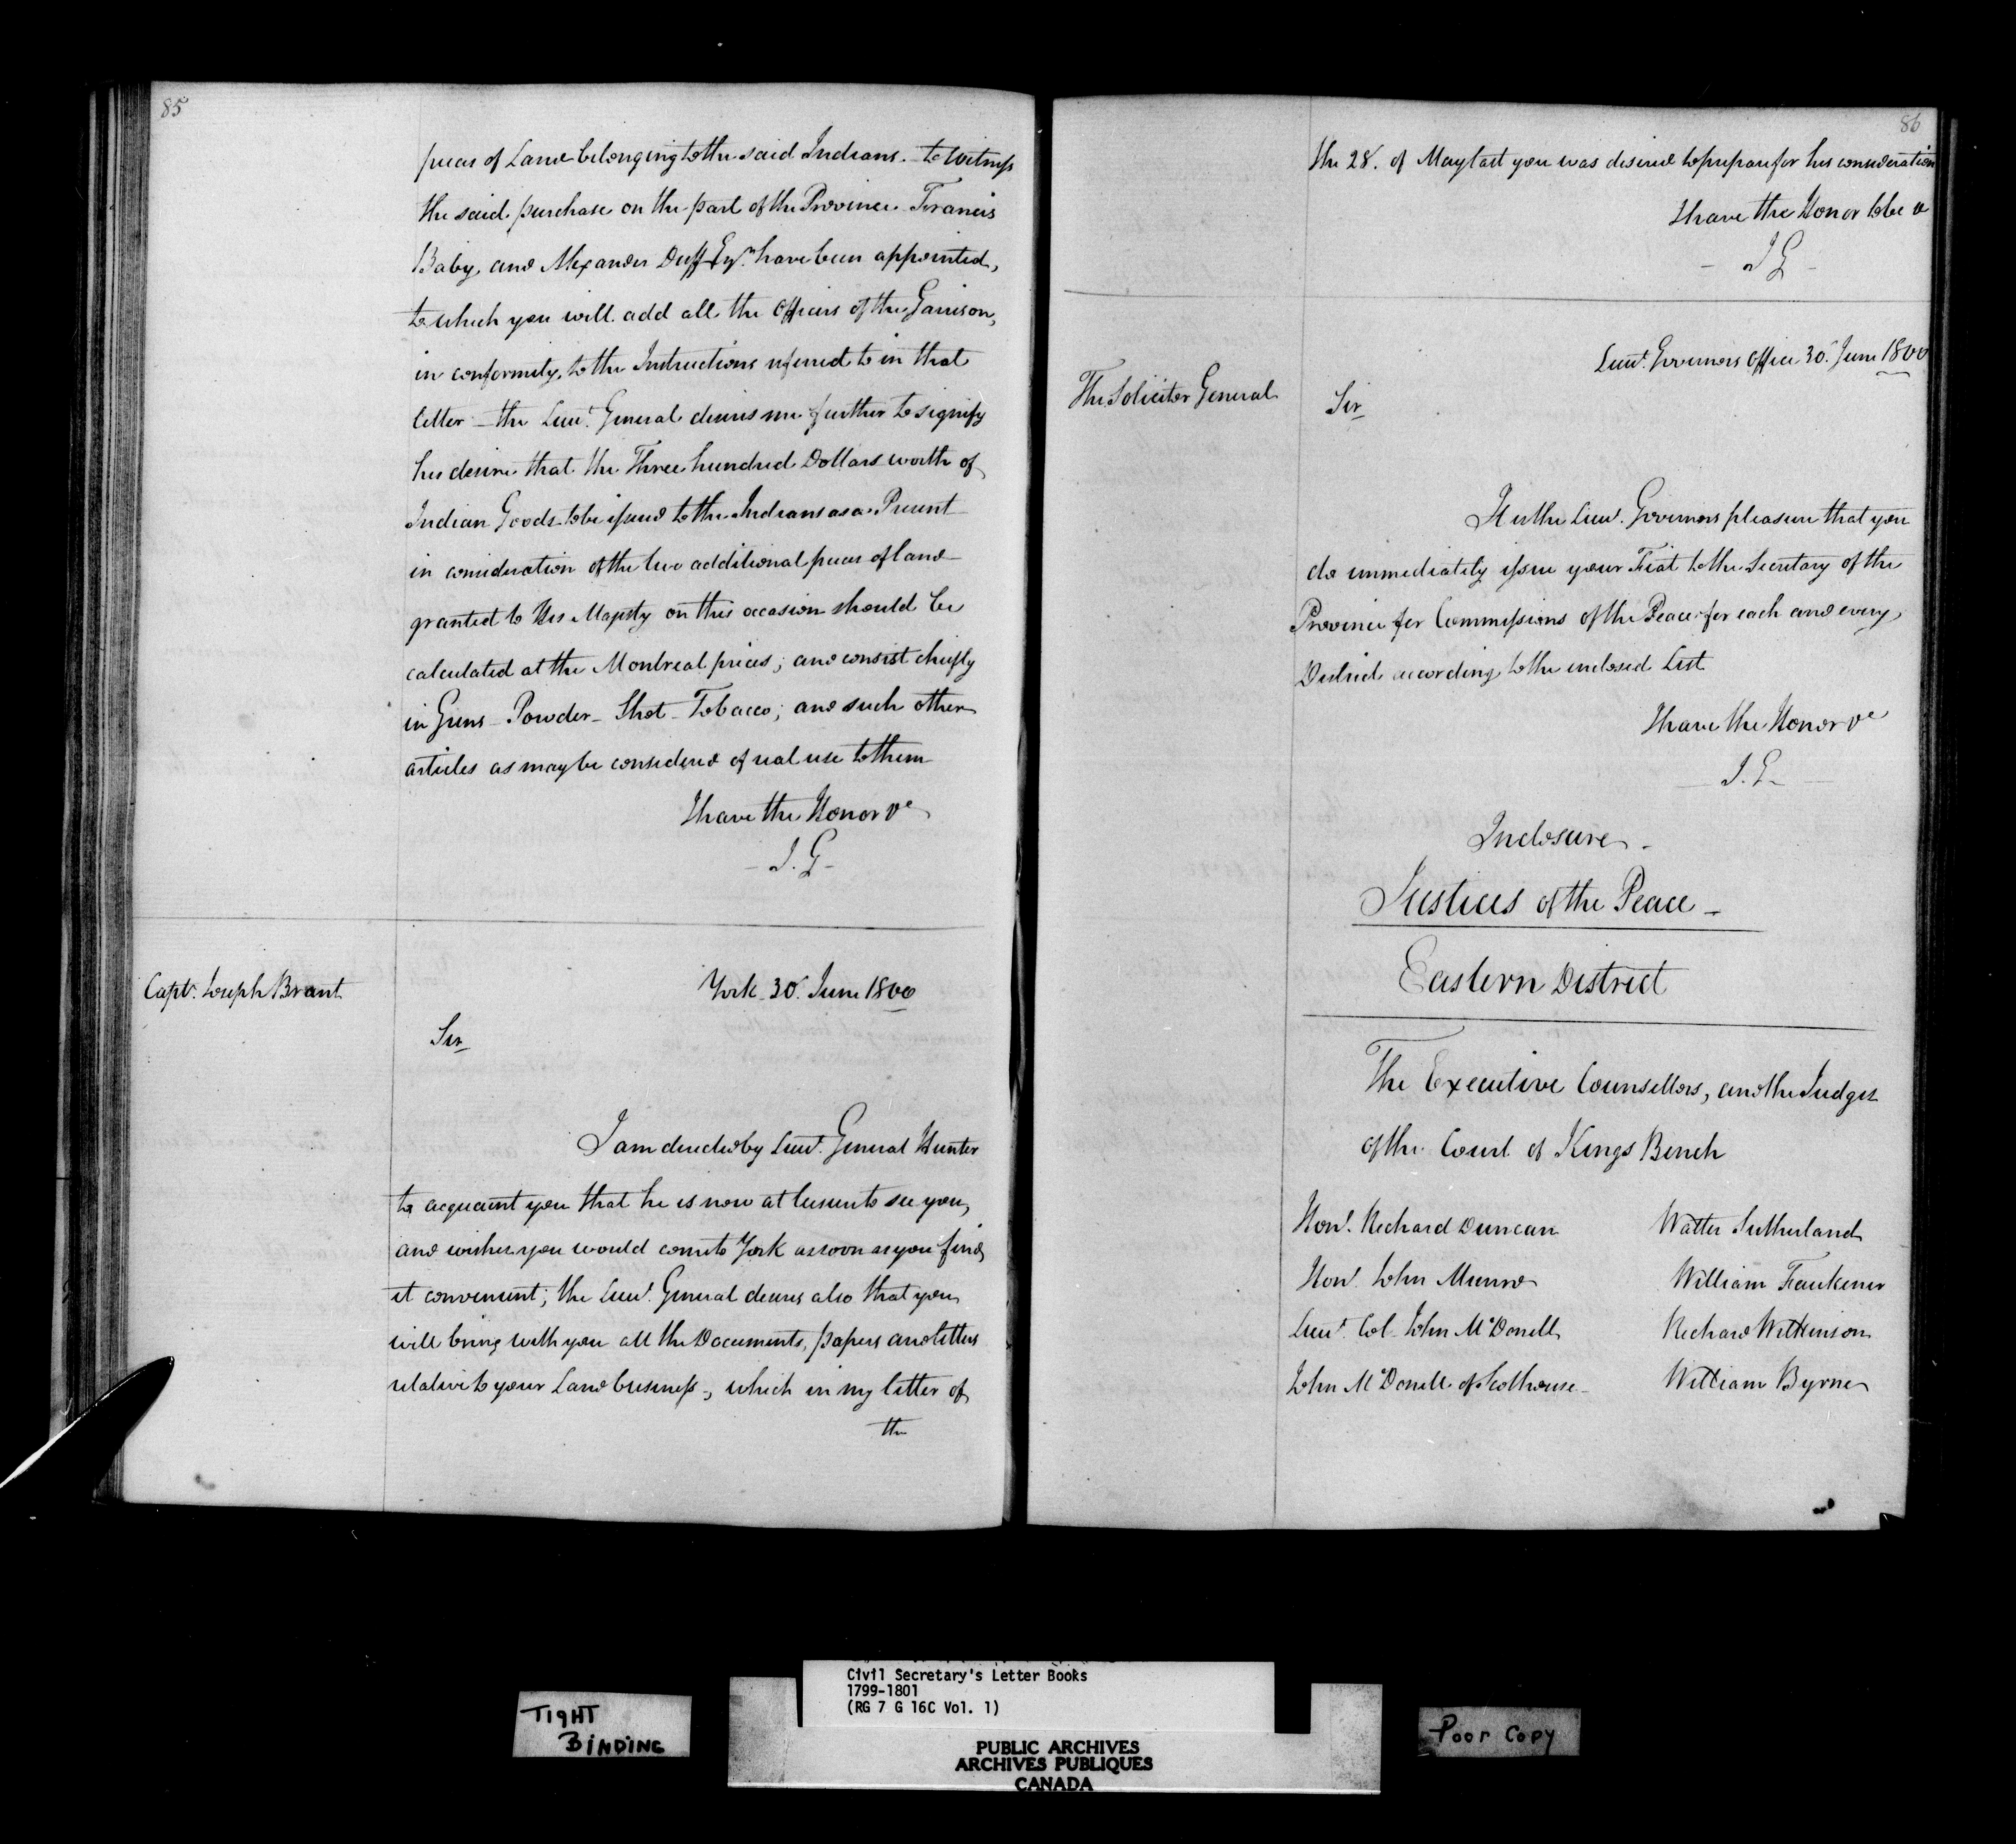 85
pieces of Land belonging to the said Indians. to Witness
the said purchase on the part of the Province Francis
Baby, and Alexander Duff Esqrs. have been appointed,
to which you will add all the Officers of the Garrison,
in conformity, to the Instructions referred to in that
letter – the Lieut. General desires me further to signify
his desire that the Three hundred Dollars worth of
Indian Goods to be issued to the Indians as a Present
in consideration of the two additional pieces of land
granted to His Majesty on this occasion should be
calculated at the Montreal prices; and consist chiefly
in Guns – Powder – Shot – Tobacco; and such other
articles as may be considered of real use to them
I have the Honor &c
– J. G –
Capt. Joseph Brant
York 30. June 1800
Sir
I am directed by Lieut. General Hunter
to acquaint you that he is now at leisure to see you,
and wishes you would come to York as soon as you find
it convenient; the Lieut. General desires also that you
will bring with you all the Documents, papers and letters
relative to your Land business –, which in my letter of
the
86
the 28. of May last you was desired to prepare for his consideration
I have the Honor to be &
– J G –
Lieut. Governors Office 30. June 1800
The Solicitor General
Sir
It is the Lieut. Governors pleasure that you
do immediately issue your Fiat to the Secretary of the
Province for Commissions of the Peace for each and every
District according to the inclosed List
I have the Honor &c
– J. G –
Inclosure –
Justices of the Peace –
Eastern District
The Executive Counsellors, and the Judges
of the Court of Kings Bench
Honl. Richard Duncan Walter Sutherland
Honl. John Munro William Faukener
Lieut. Col. John McDonell Richard Wilkinson
John McDonell of Scothouse William Byrne
TIGHT
BINDING
Civil Secretary's Letter Books
1799-1801
(RG 7 G 16C Vol. 1)
PUBLIC ARCHIVES
ARCHIVES PUBLIQUES
CANADA
Poor Copy